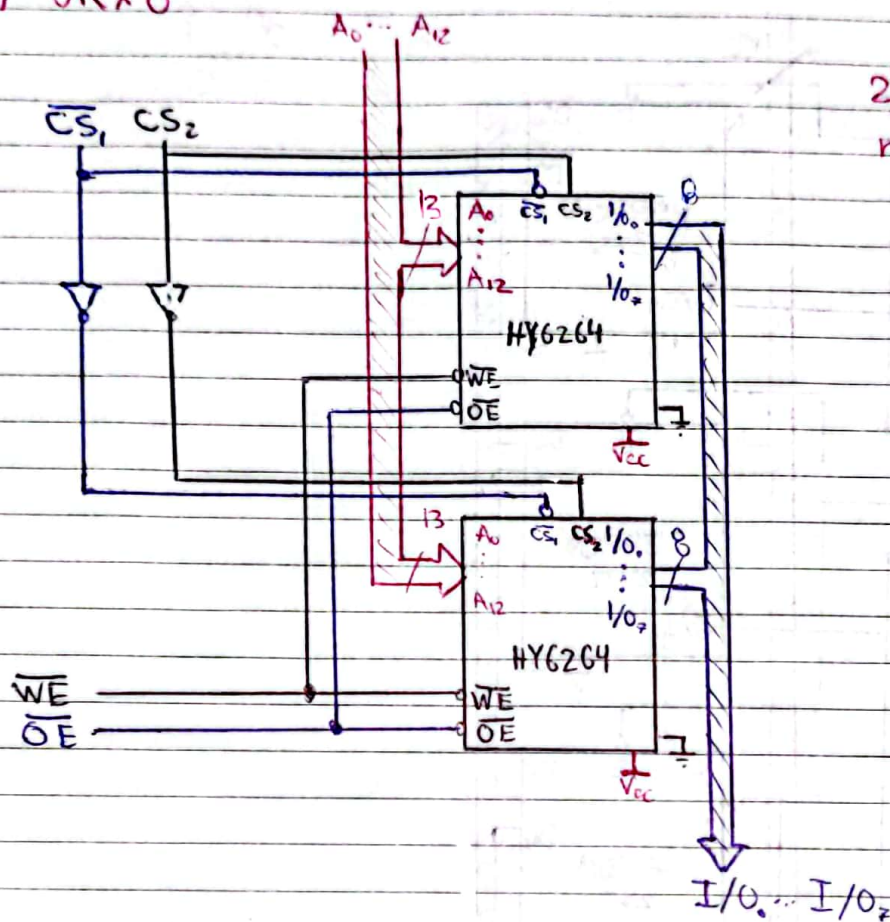 A₀ ... A₁₂
2
C̅S̅₁ CS₂
13
8
A₀ C̅S̅₁ CS₂ I/O₀
⋮
A₁₂ I/O₇
HY6264
W̅E̅
O̅E̅
Vcc
13
8
A₀ C̅S̅₁ CS₂ I/O₀
⋮
A₁₂ I/O₇
HY6264
W̅E̅ W̅E̅
O̅E̅ O̅E̅
Vcc
I/O₀ ... I/O₇